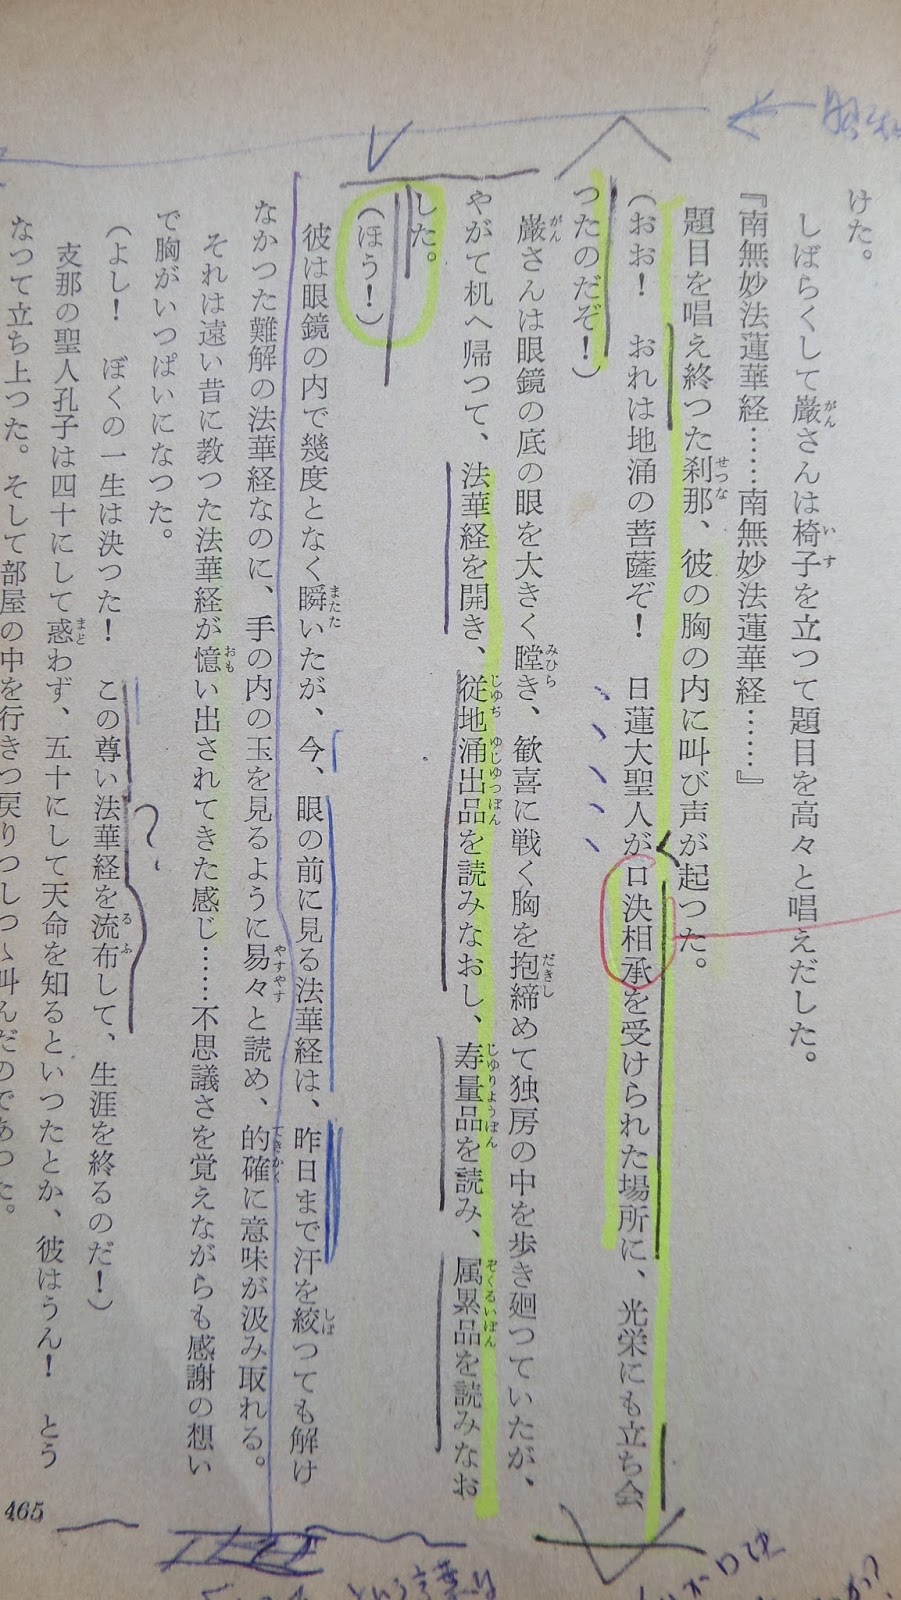 けた。
しばらくして厳さんは椅子を立つて題目を高々と唱えだした。
『南無妙法蓮華経……南無妙法蓮華経……』
題目を唱え終つた刹那、彼の胸の内に叫び声が起つた。
(おお！　おれは地涌の菩薩ぞ！　日蓮大聖人が口決相承を受けられた場所に、光栄にも立ち会
つたのだぞ！)
厳さんは眼鏡の底の眼を大きく瞠き、歓喜に戦く胸を抱締めて独房の中を歩き廻つていたが、
やがて机へ帰つて、法華経を開き、従地涌出品を読みなおし、寿量品を読み、属累品を読みなお
した。
(ほう！)
彼は眼鏡の内で幾度となく瞬いたが、今、眼の前に見る法華経は、昨日まで汗を絞つても解け
なかつた難解の法華経なのに、手の内の玉を見るように易々と読め、的確に意味が汲み取れる。
それは遠い昔に教つた法華経が憶い出されてきた感じ……不思議さを覚えながらも感謝の想い
で胸がいつぱいになつた。
(よし！　ぼくの一生は決つた！　この尊い法華経を流布して、生涯を終るのだ！)
支那の聖人孔子は四十にして惑わず、五十にして天命を知るといつたとか、彼はうん！　とう
なつて立ち上つた。そして部屋の中を行きつ戻りつしつゝ叫んだのであつた。
465
という言葉は